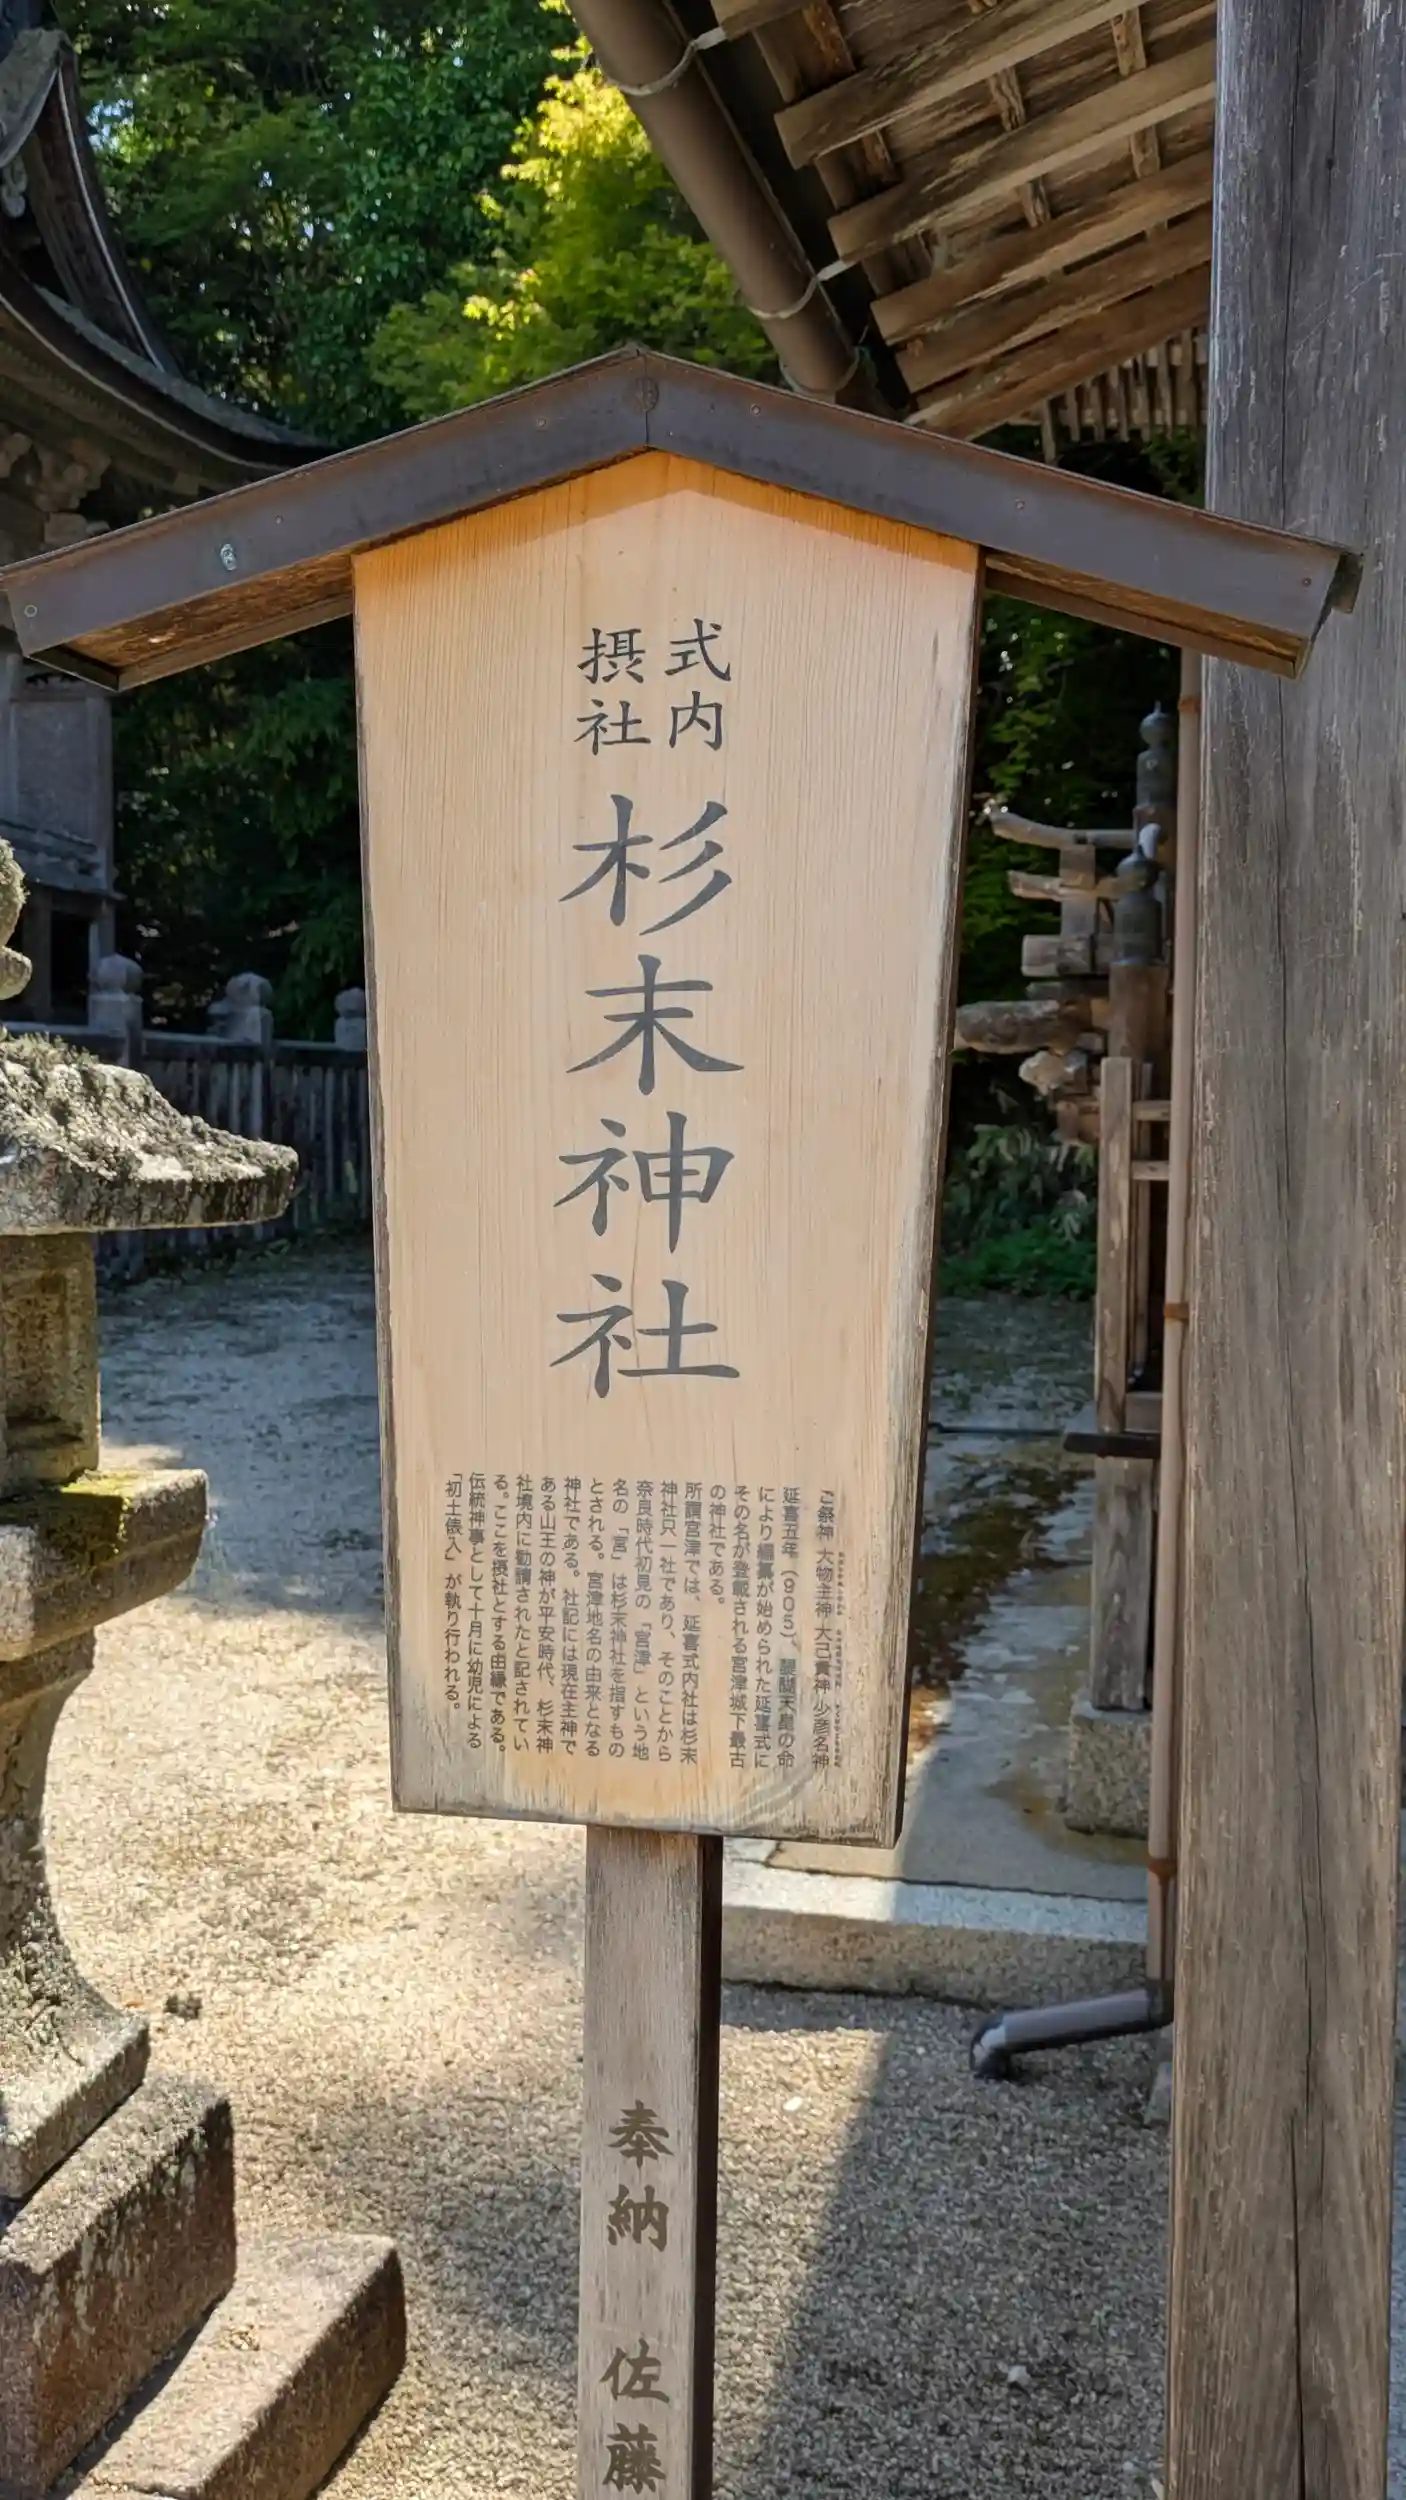 式内
摂社
杉末神社
ご祭神 大物主神 大己貴神 少彦名神
延喜五年（905）、醍醐天皇の命
により編纂が始められた延喜式に
その名が登載される宮津城下最古
の神社である。
所謂宮津では、延喜式内社は杉末
神社只一社であり、そのことから
奈良時代初見の「宮津」という地
名の「宮」は杉末神社を指すもの
とされる。宮津地名の由来となる
神社である。社記には現在主神で
ある山王の神が平安時代、杉末神
社境内に勧請されたと記されてい
る。ここを摂社とする由縁である。
伝統神事として十月に幼児による
「初土俵入」が執り行われる。
奉納 佐藤